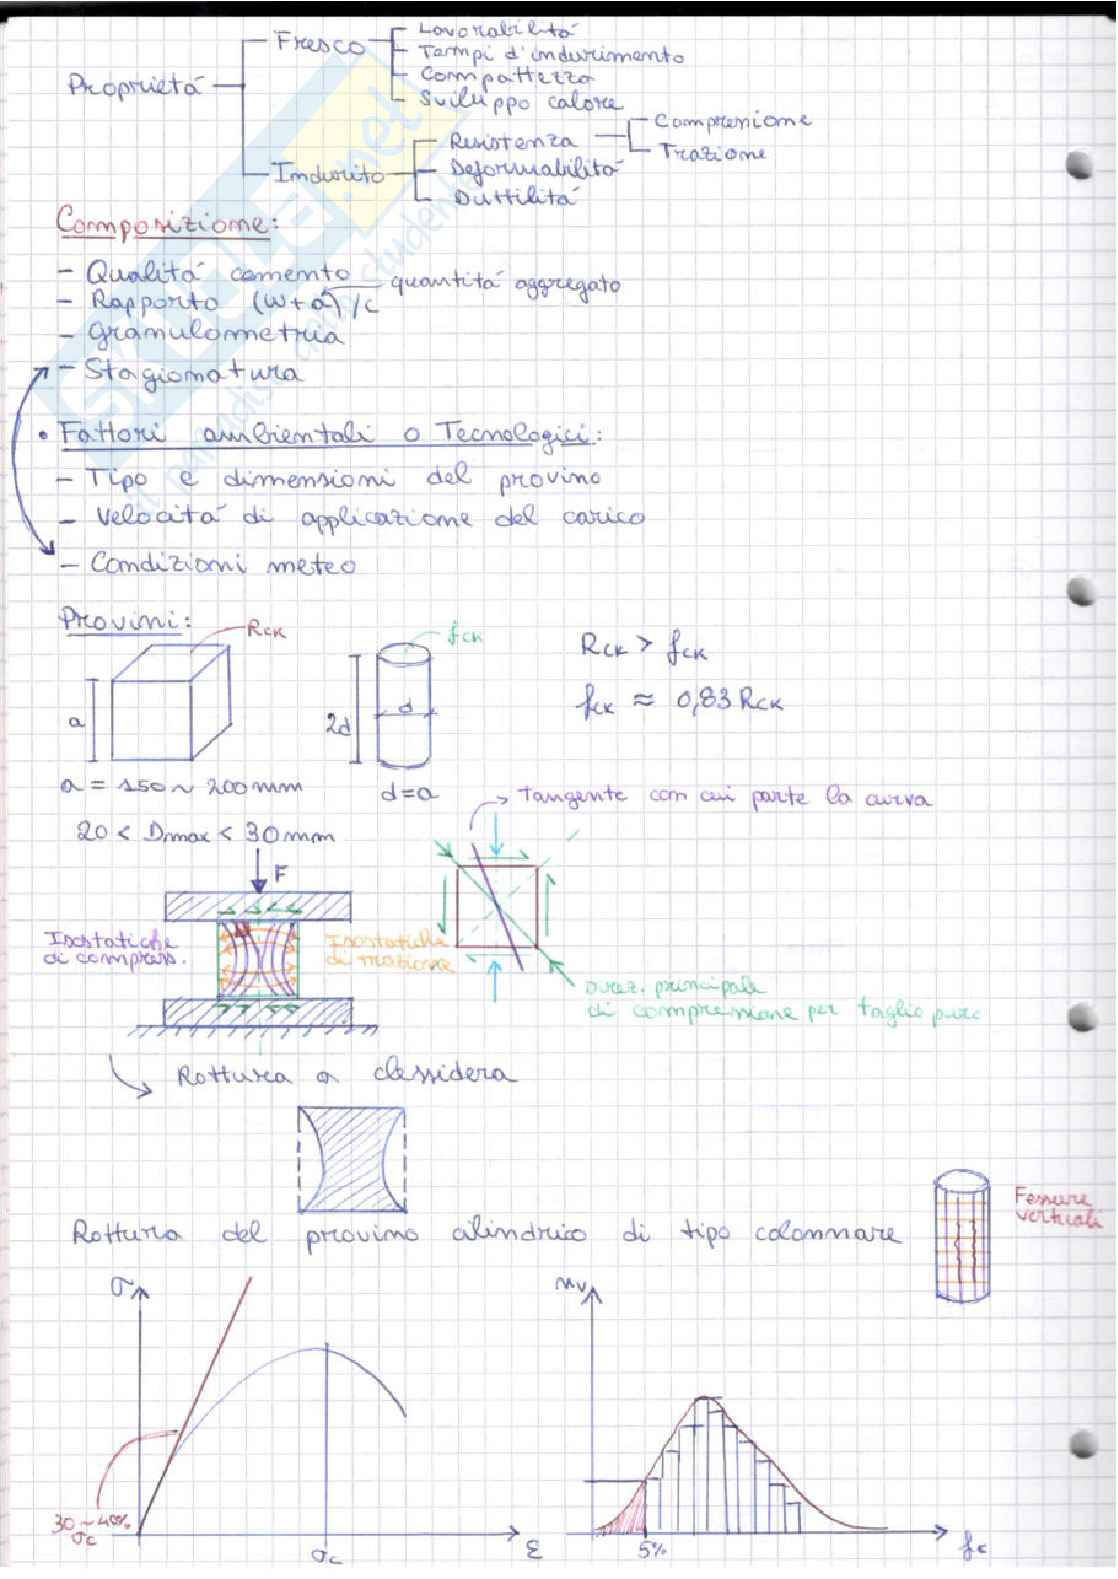 Proprietá
Fresco
Lavorabilitá
Tempi d'indurimento
Compattezza
Sviluppo calore
Indurito
Resistenza
Compressione
Trazione
Deformabilitá
Duttilitá
Composizione:
- Qualitá cemento
- Rapporto (w+a)/c
quantitá aggregato
- Granulometria
- Stagionatura
• Fattori ambientali o Tecnologici:
- Tipo e dimensioni del provino
- Velocitá di applicazione del carico
- Condizioni meteo
Provini:
Rck
fck
Rck > fck
fck ≈ 0,83 Rck
a
2d
d
a = 150 ~ 200 mm
d=a
20 < Dmax < 30 mm
Tangente con cui parte la curva
F
Isostatiche
di compress.
Isostatiche
di trazione
direz. principale
di compressione per taglio puro
Rottura a clessidera
Rottura del provino cilindrico di tipo colonnare
Fessure
verticali
σ
30~40%
σc
σc
ε
nv
5%
fc
skuola.net